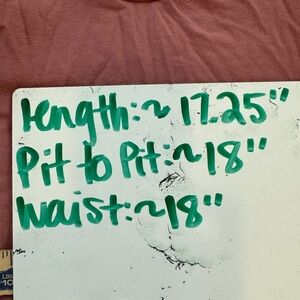 length:~ 17.25"
Pit to Pit:~18"
Waist:~18"